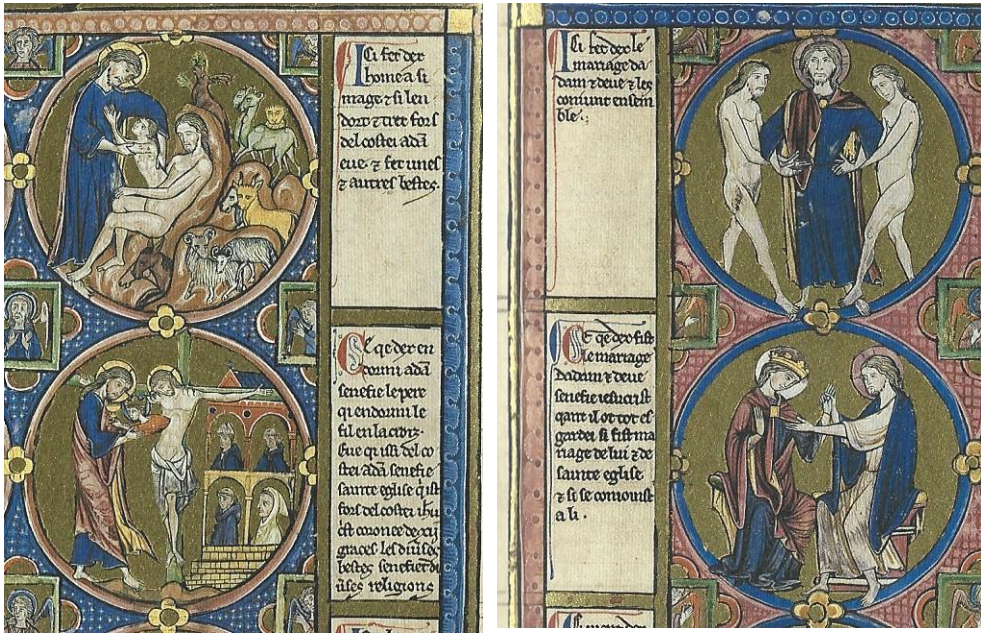 Ici fet dex
home a si
mage ⁊ si len
dort ⁊ tret fors
del costei adā
eue. ⁊ fet unes
⁊ autres bestes.
Ce qe dex en
dormi adā
senefie le pere
qi endormi le
fil en la croiz.
Eue qi issi del co
stei adā senefie
sainte eglise q ist
fors del costei ihū
est coronee de xij
graces les diūses
bestes senefiēt di
ūses religions
Ici fet dex le
mariage da
dam ⁊ deue ⁊ les
coniunt ensem
ble.
Ce qe dex fist
le mariage
dadam ⁊ deue
senefie iesucrist
qant il ot tot es
gardei si fist ma
riage de lui ⁊ de
sainte eglise
⁊ si se conioinst
a li.